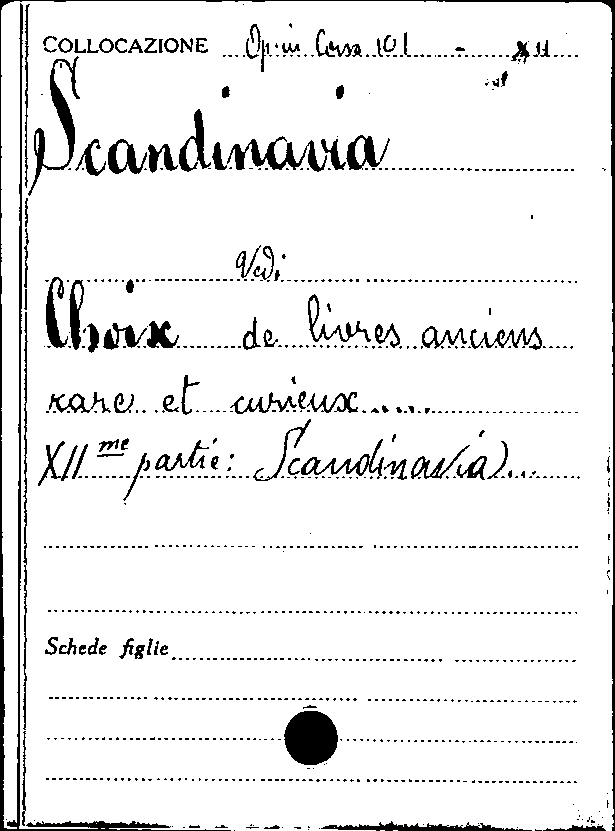 COLLOCAZIONE Op. in Corso 101 -
Scandinavia
Vedi
Choix de livres anciens
rare et curieux.....
XII me partie: Scandinavia...
Schede figlie